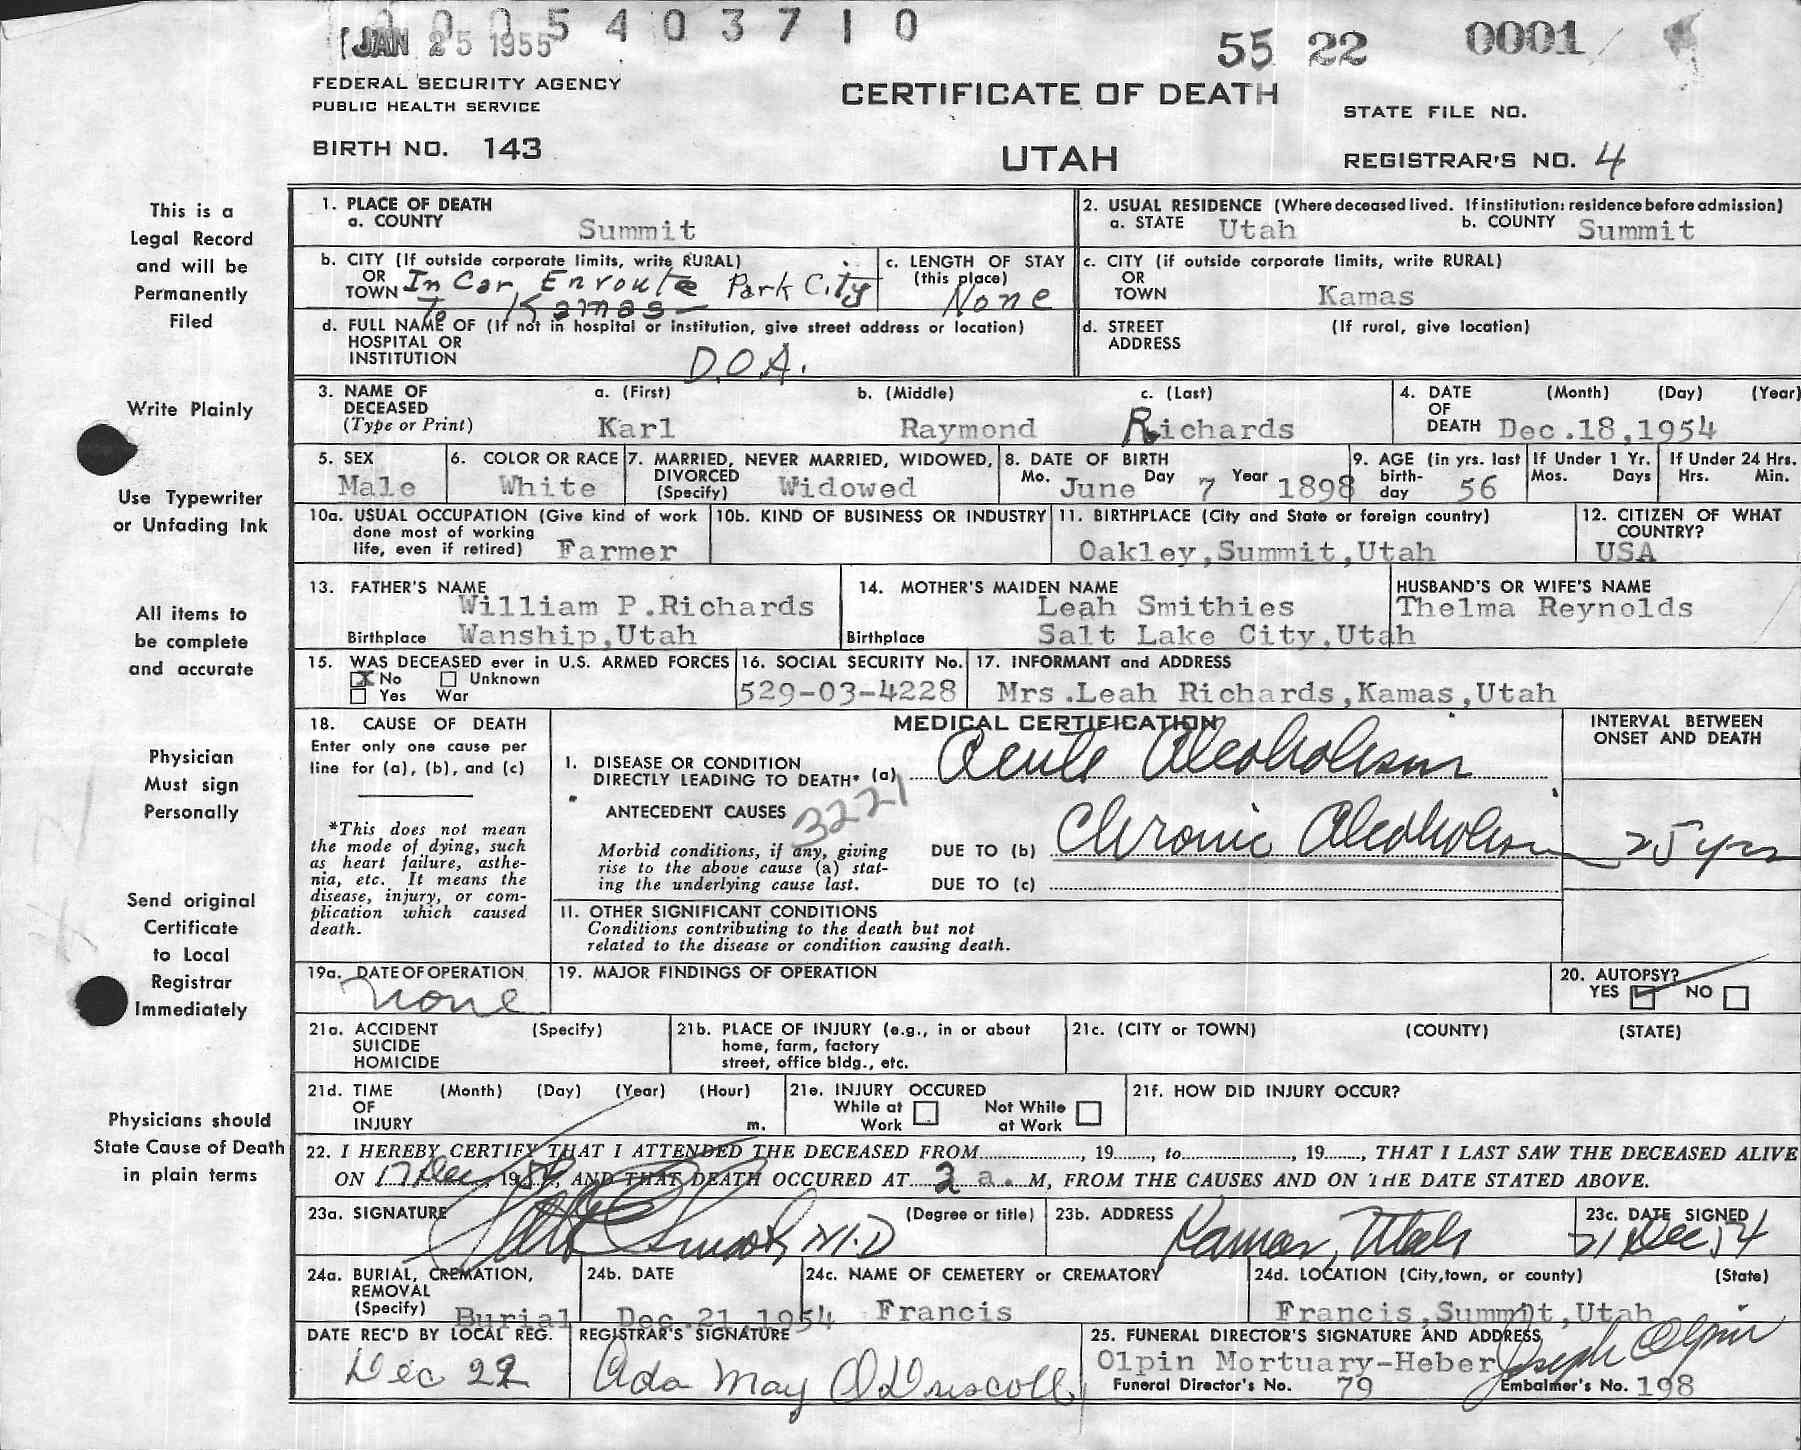 JAN 25 1955
5 4 0 3 7 1 0
55 22 0001
FEDERAL SECURITY AGENCY
PUBLIC HEALTH SERVICE
CERTIFICATE OF DEATH
STATE FILE NO.
BIRTH NO. 143
UTAH
REGISTRAR'S NO. 4
This is a
Legal Record
and will be
Permanently
Filed
Write Plainly
Use Typewriter
or Unfading Ink
All items to
be complete
and accurate
Physician
Must sign
Personally
Send original
Certificate
to Local
Registrar
Immediately
Physicians should
State Cause of Death
in plain terms
1. PLACE OF DEATH
a. COUNTY Summit
2. USUAL RESIDENCE (Where deceased lived. If institution: residence before admission)
a. STATE Utah b. COUNTY Summit
b. CITY (If outside corporate limits, write RURAL)
OR
TOWN In Car Enroute Park City
To Kamas
c. LENGTH OF STAY
(this place)
None
c. CITY (if outside corporate limits, write RURAL)
OR
TOWN Kamas
d. FULL NAME OF (If not in hospital or institution, give street address or location)
HOSPITAL OR
INSTITUTION D.O.A.
d. STREET (If rural, give location)
ADDRESS
3. NAME OF a. (First) b. (Middle) c. (Last)
DECEASED
(Type or Print) Karl Raymond Richards
4. DATE (Month) (Day) (Year)
OF
DEATH Dec.18,1954
5. SEX
Male
6. COLOR OR RACE
White
7. MARRIED, NEVER MARRIED, WIDOWED,
DIVORCED
(Specify) Widowed
8. DATE OF BIRTH
Mo. June Day 7 Year 1898
9. AGE (in yrs. last
birth-
day 56
If Under 1 Yr.
Mos. Days
If Under 24 Hrs.
Hrs. Min.
10a. USUAL OCCUPATION (Give kind of work
done most of working
life, even if retired) Farmer
10b. KIND OF BUSINESS OR INDUSTRY
11. BIRTHPLACE (City and State or foreign country)
Oakley,Summit,Utah
12. CITIZEN OF WHAT
COUNTRY?
USA
13. FATHER'S NAME
William P.Richards
Birthplace Wanship,Utah
14. MOTHER'S MAIDEN NAME
Leah Smithies
Birthplace Salt Lake City,Utah
HUSBAND'S OR WIFE'S NAME
Thelma Reynolds
15. WAS DECEASED ever in U.S. ARMED FORCES
X No Unknown
Yes War
16. SOCIAL SECURITY No.
529-03-4228
17. INFORMANT and ADDRESS
Mrs.Leah Richards,Kamas,Utah
18. CAUSE OF DEATH
Enter only one cause per
line for (a), (b), and (c)
*This does not mean
the mode of dying, such
as heart failure, asthe-
nia, etc. It means the
disease, injury, or com-
plication which caused
death.
MEDICAL CERTIFICATION
I. DISEASE OR CONDITION
DIRECTLY LEADING TO DEATH* (a) Acute Alcoholism
ANTECEDENT CAUSES 3221
Morbid conditions, if any, giving
rise to the above cause (a) stat-
ing the underlying cause last.
DUE TO (b) Chronic Alcoholism
DUE TO (c)
INTERVAL BETWEEN
ONSET AND DEATH
25 yrs
II. OTHER SIGNIFICANT CONDITIONS
Conditions contributing to the death but not
related to the disease or condition causing death.
19a. DATE OF OPERATION
none
19. MAJOR FINDINGS OF OPERATION
20. AUTOPSY?
YES NO
21a. ACCIDENT (Specify)
SUICIDE
HOMICIDE
21b. PLACE OF INJURY (e.g., in or about
home, farm, factory
street, office bldg., etc.
21c. (CITY or TOWN) (COUNTY) (STATE)
21d. TIME (Month) (Day) (Year) (Hour)
OF
INJURY m.
21e. INJURY OCCURED
While at Work
Not While at Work
21f. HOW DID INJURY OCCUR?
22. I HEREBY CERTIFY THAT I ATTENDED THE DECEASED FROM........, 19...., to........, 19...., THAT I LAST SAW THE DECEASED ALIVE
ON 17 Dec, 1954, AND THAT DEATH OCCURED AT 2 a. M, FROM THE CAUSES AND ON THE DATE STATED ABOVE.
23a. SIGNATURE (Degree or title)
M.D
23b. ADDRESS
Kamas, Utah
23c. DATE SIGNED
21 Dec 54
24a. BURIAL, CREMATION,
REMOVAL
(Specify) Burial
24b. DATE
Dec.21,1954
24c. NAME OF CEMETERY or CREMATORY
Francis
24d. LOCATION (City,town, or county) (State)
Francis,Summit,Utah
DATE REC'D BY LOCAL REG.
Dec 22
REGISTRAR'S SIGNATURE
Ada May O'Driscoll
25. FUNERAL DIRECTOR'S SIGNATURE AND ADDRESS
Olpin Mortuary-Heber Joseph Olpin
Funeral Director's No. 79 Embalmer's No. 198